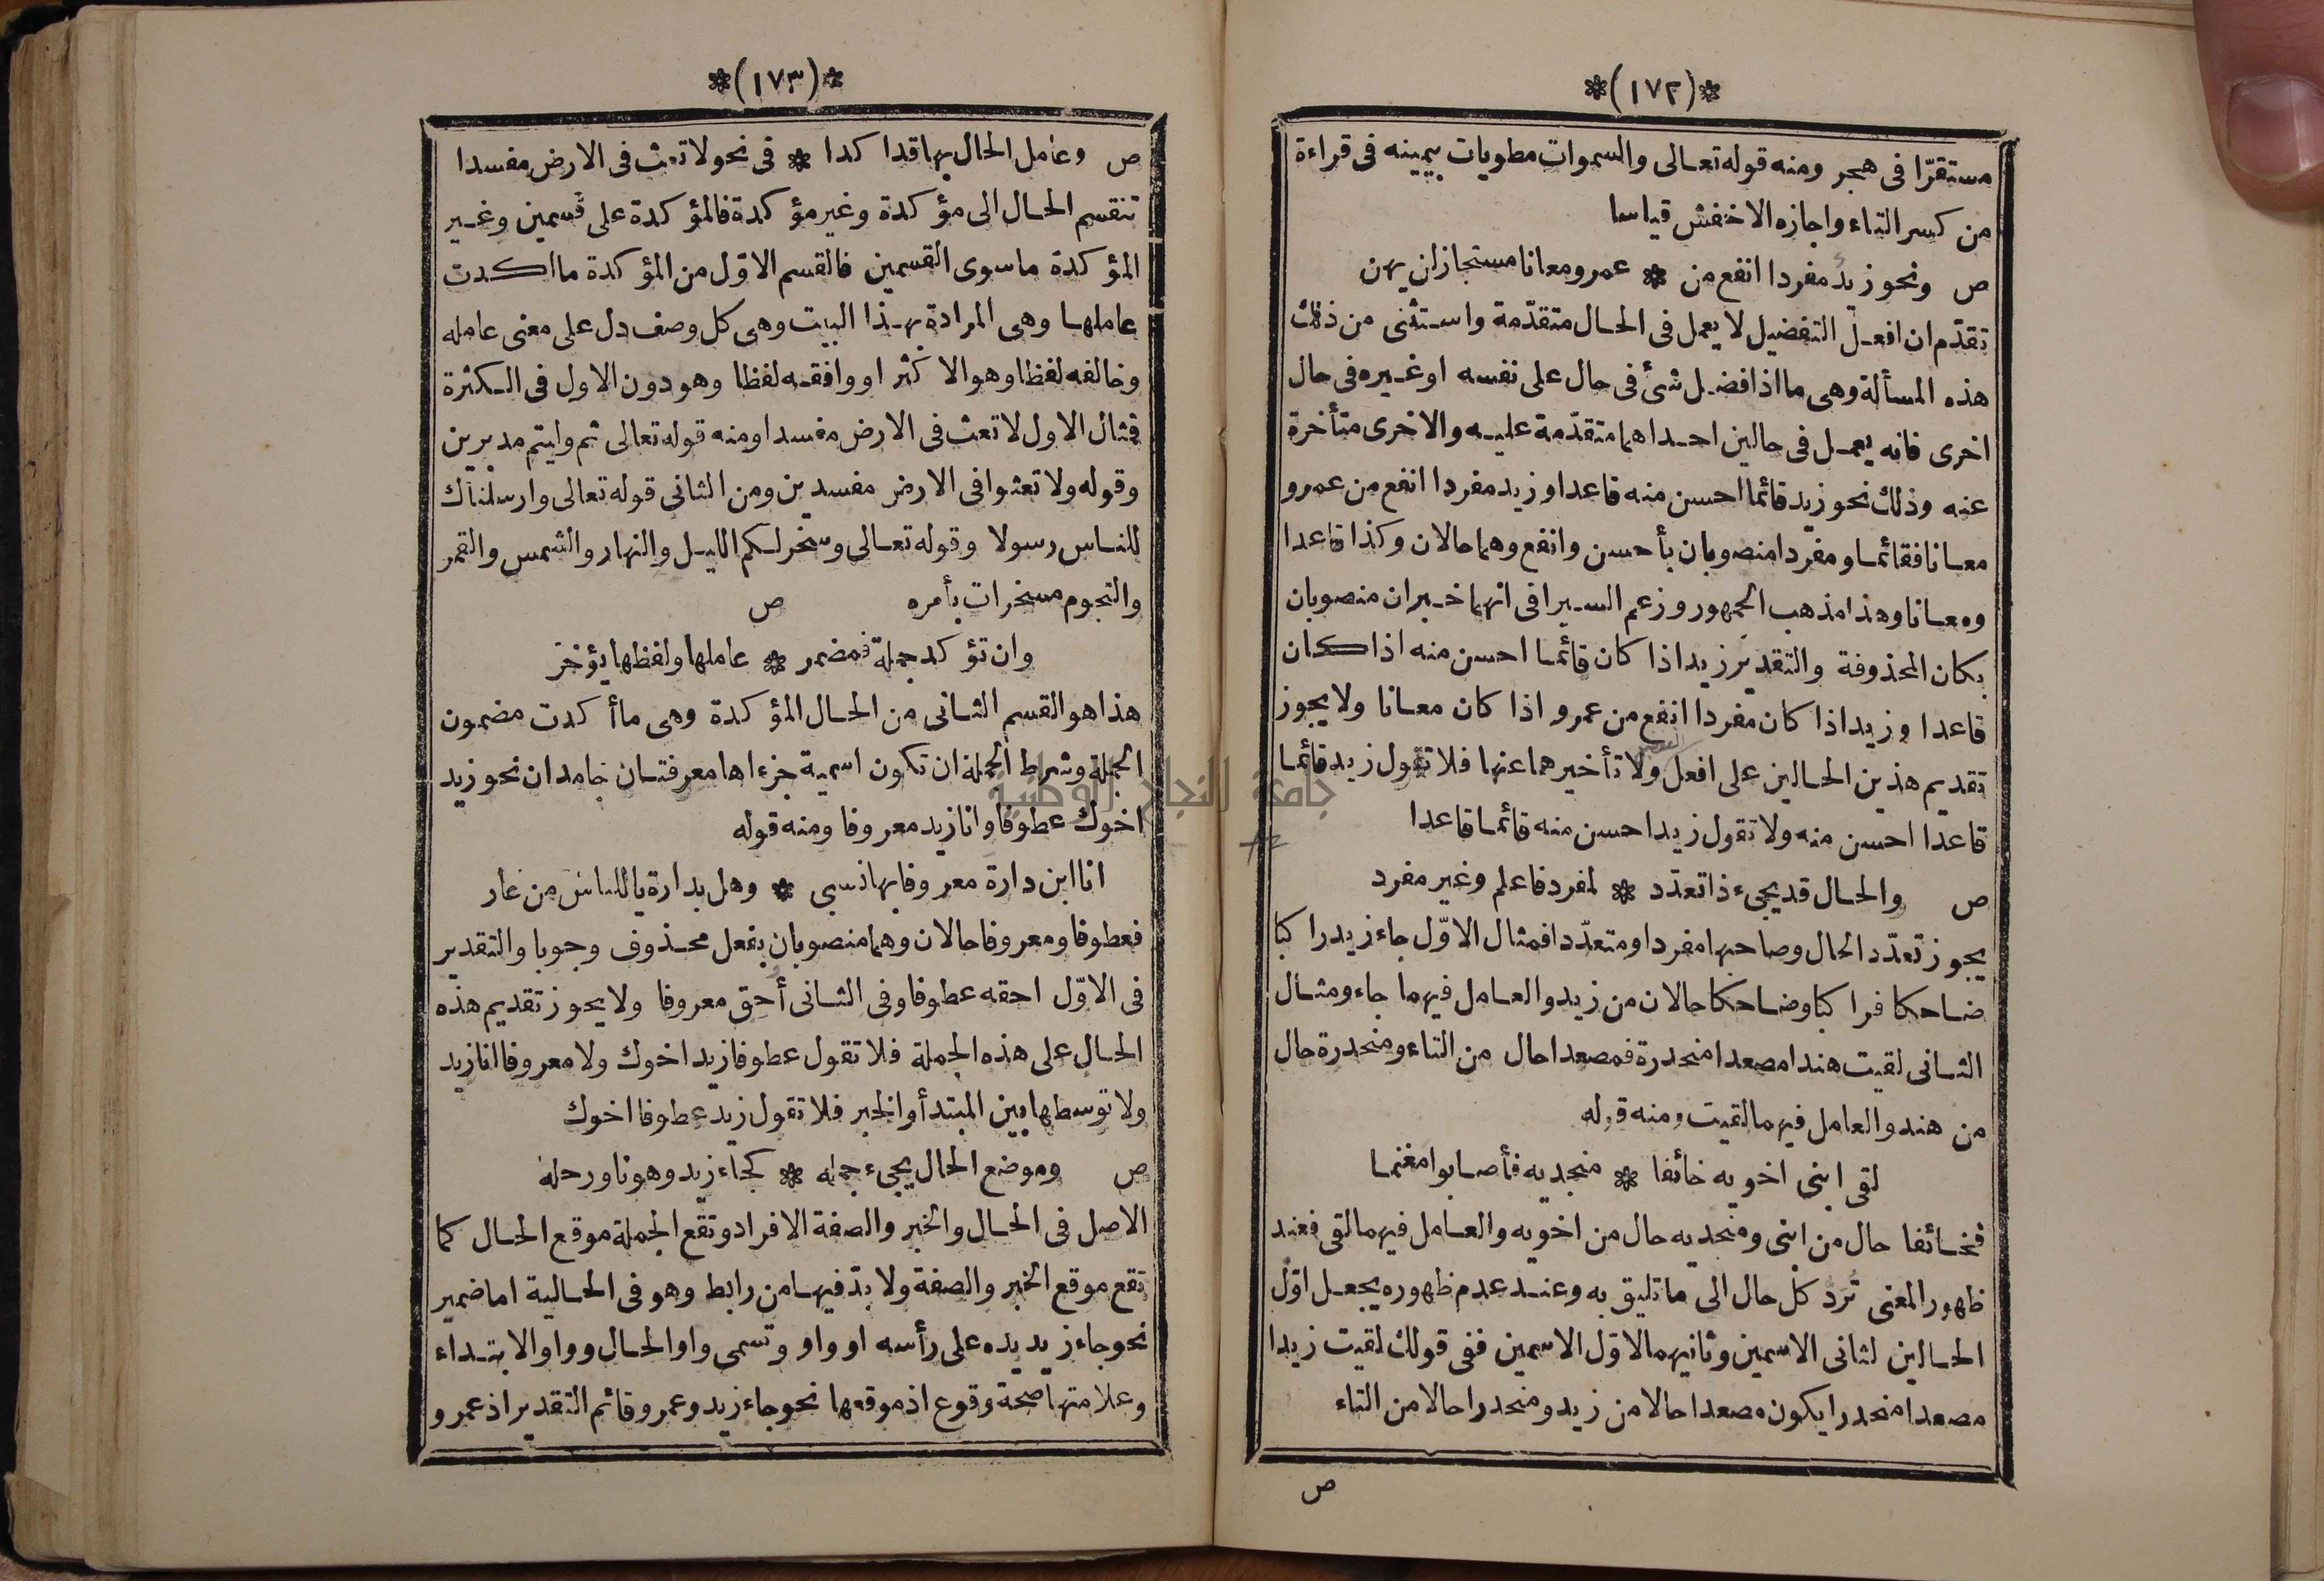 *(١٧٢)*
مستقرّا فى هجر ومنه قوله تعالى والسموات مطويات بيمينه فى قراءة
من كسر التاء واجازه الاخفش قياسا
ص ونحو زيد مفردا انفع من * عمرو معانا مستجاز ان يهن
تقدّم ان افعل التفضيل لا يعمل فى الحال متقدّمة واستثنى من ذلك
هذه المسألة وهى ما اذا فضل شئ فى حال على نفسه او غيره فى حال
اخرى فانه يعمل فى حالين احداهما متقدّمة عليه والاخرى متأخرة
عنه وذلك نحو زيد قائما احسن منه قاعدا وزيد مفردا انفع من عمرو
معانا فقائما ومفردا منصوبان بأحسن وانفع وهما حالان وكذا قاعدا
ومعانا وهذا مذهب الجمهور وزعم السيرافى انهما خبران منصوبان
بكان المحذوفة والتقدير زيد اذا كان قائما احسن منه اذا كان
قاعدا وزيد اذا كان مفردا انفع من عمرو اذا كان معانا ولا يجوز
تقديم هذين الحالين على افعل ولا تأخيرهما عنها فلا تقول زيد قائما
قاعدا احسن منه ولا تقول زيد احسن منه قائما قاعدا
ص والحال قد يجىء ذا تعدّد * لمفرد فاعلم وغير مفرد
يجوز تعدّد الحال وصاحبها مفرد او متعدّد افمثال الاوّل جاء زيد راكبا
ضاحكا فراكبا وضاحكا حالان من زيد والعامل فيهما جاء ومثال
الثانى لقيت هندا مصعدا منحدرة فمصعدا حال من التاء ومنحدرة حال
من هند والعامل فيهما لقيت ومنه قوله
لقى ابنى اخويه خائفا * منجديه فأصابوا مغنما
فخائفا حال من ابنى ومنجديه حال من اخويه والعامل فيهما لقى فعند
ظهور المعنى تردّ كل حال الى ما تليق به وعند عدم ظهوره يجعل اوّل
الحالين لثانى الاسمين وثانيهما لاوّل الاسمين ففى قولك لقيت زيدا
مصعدا منحدرا يكون مصعدا حالا من زيد ومنحدرا حالا من التاء
ص
*(١٧٣)*
ص وعامل الحال بها قد اكدا * فى نحو لا تعث فى الارض مفسدا
تنقسم الحال الى مؤكدة وغير مؤكدة فالمؤكدة على قسمين وغير
المؤكدة ما سوى القسمين فالقسم الاوّل من المؤكدة ما اكدت
عاملها وهى المرادة بهذا البيت وهى كل وصف دل على معنى عامله
وخالفه لفظا وهو الاكثر او وافقه لفظا وهو دون الاول فى الكثرة
فمثال الاول لا تعث فى الارض مفسدا ومنه قوله تعالى ثم وليتم مدبرين
وقوله ولا تعثوا فى الارض مفسدين ومن الثانى قوله تعالى وارسلناك
للناس رسولا وقوله تعالى وسخر لكم الليل والنهار والشمس والقمر
والنجوم مسخرات بأمره ص
وان تؤكد جملة فمضمر * عاملها ولفظها يؤخر
هذا هو القسم الثانى من الحال المؤكدة وهى ما أكدت مضمون
الجملة وشرط الجملة ان تكون اسمية جزءاها معرفتان جامدان نحو زيد
اخوك عطوفا وانا زيد معروفا ومنه قوله
انا ابن دارة معروفا بها نسبى * وهل بدارة يا للناس من عار
فعطوفا ومعروفا حالان وهما منصوبان بفعل محذوف وجوبا والتقدير
فى الاوّل احقه عطوفا وفى الثانى أحق معروفا ولا يجوز تقديم هذه
الحال على هذه الجملة فلا تقول عطوفا زيد اخوك ولا معروفا انا زيد
ولا توسطها بين المبتدأ والخبر فلا تقول زيد عطوفا اخوك
ص وموضع الحال يجىء جمله * كجاء زيد وهو ناو رحله
الاصل فى الحال والخبر والصفة الافراد وتقع الجملة موقع الحال كما
تقع موقع الخبر والصفة ولا بدّ فيها من رابط وهو فى الحالية اما ضمير
نحو جاء زيد يده على رأسه او واو وتسمى واو الحال وواو الابتداء
وعلامتها صحة وقوع اذ موقعها نحو جاء زيد وعمرو قائم التقدير اذ عمرو
جامعة النجاح الوطنية